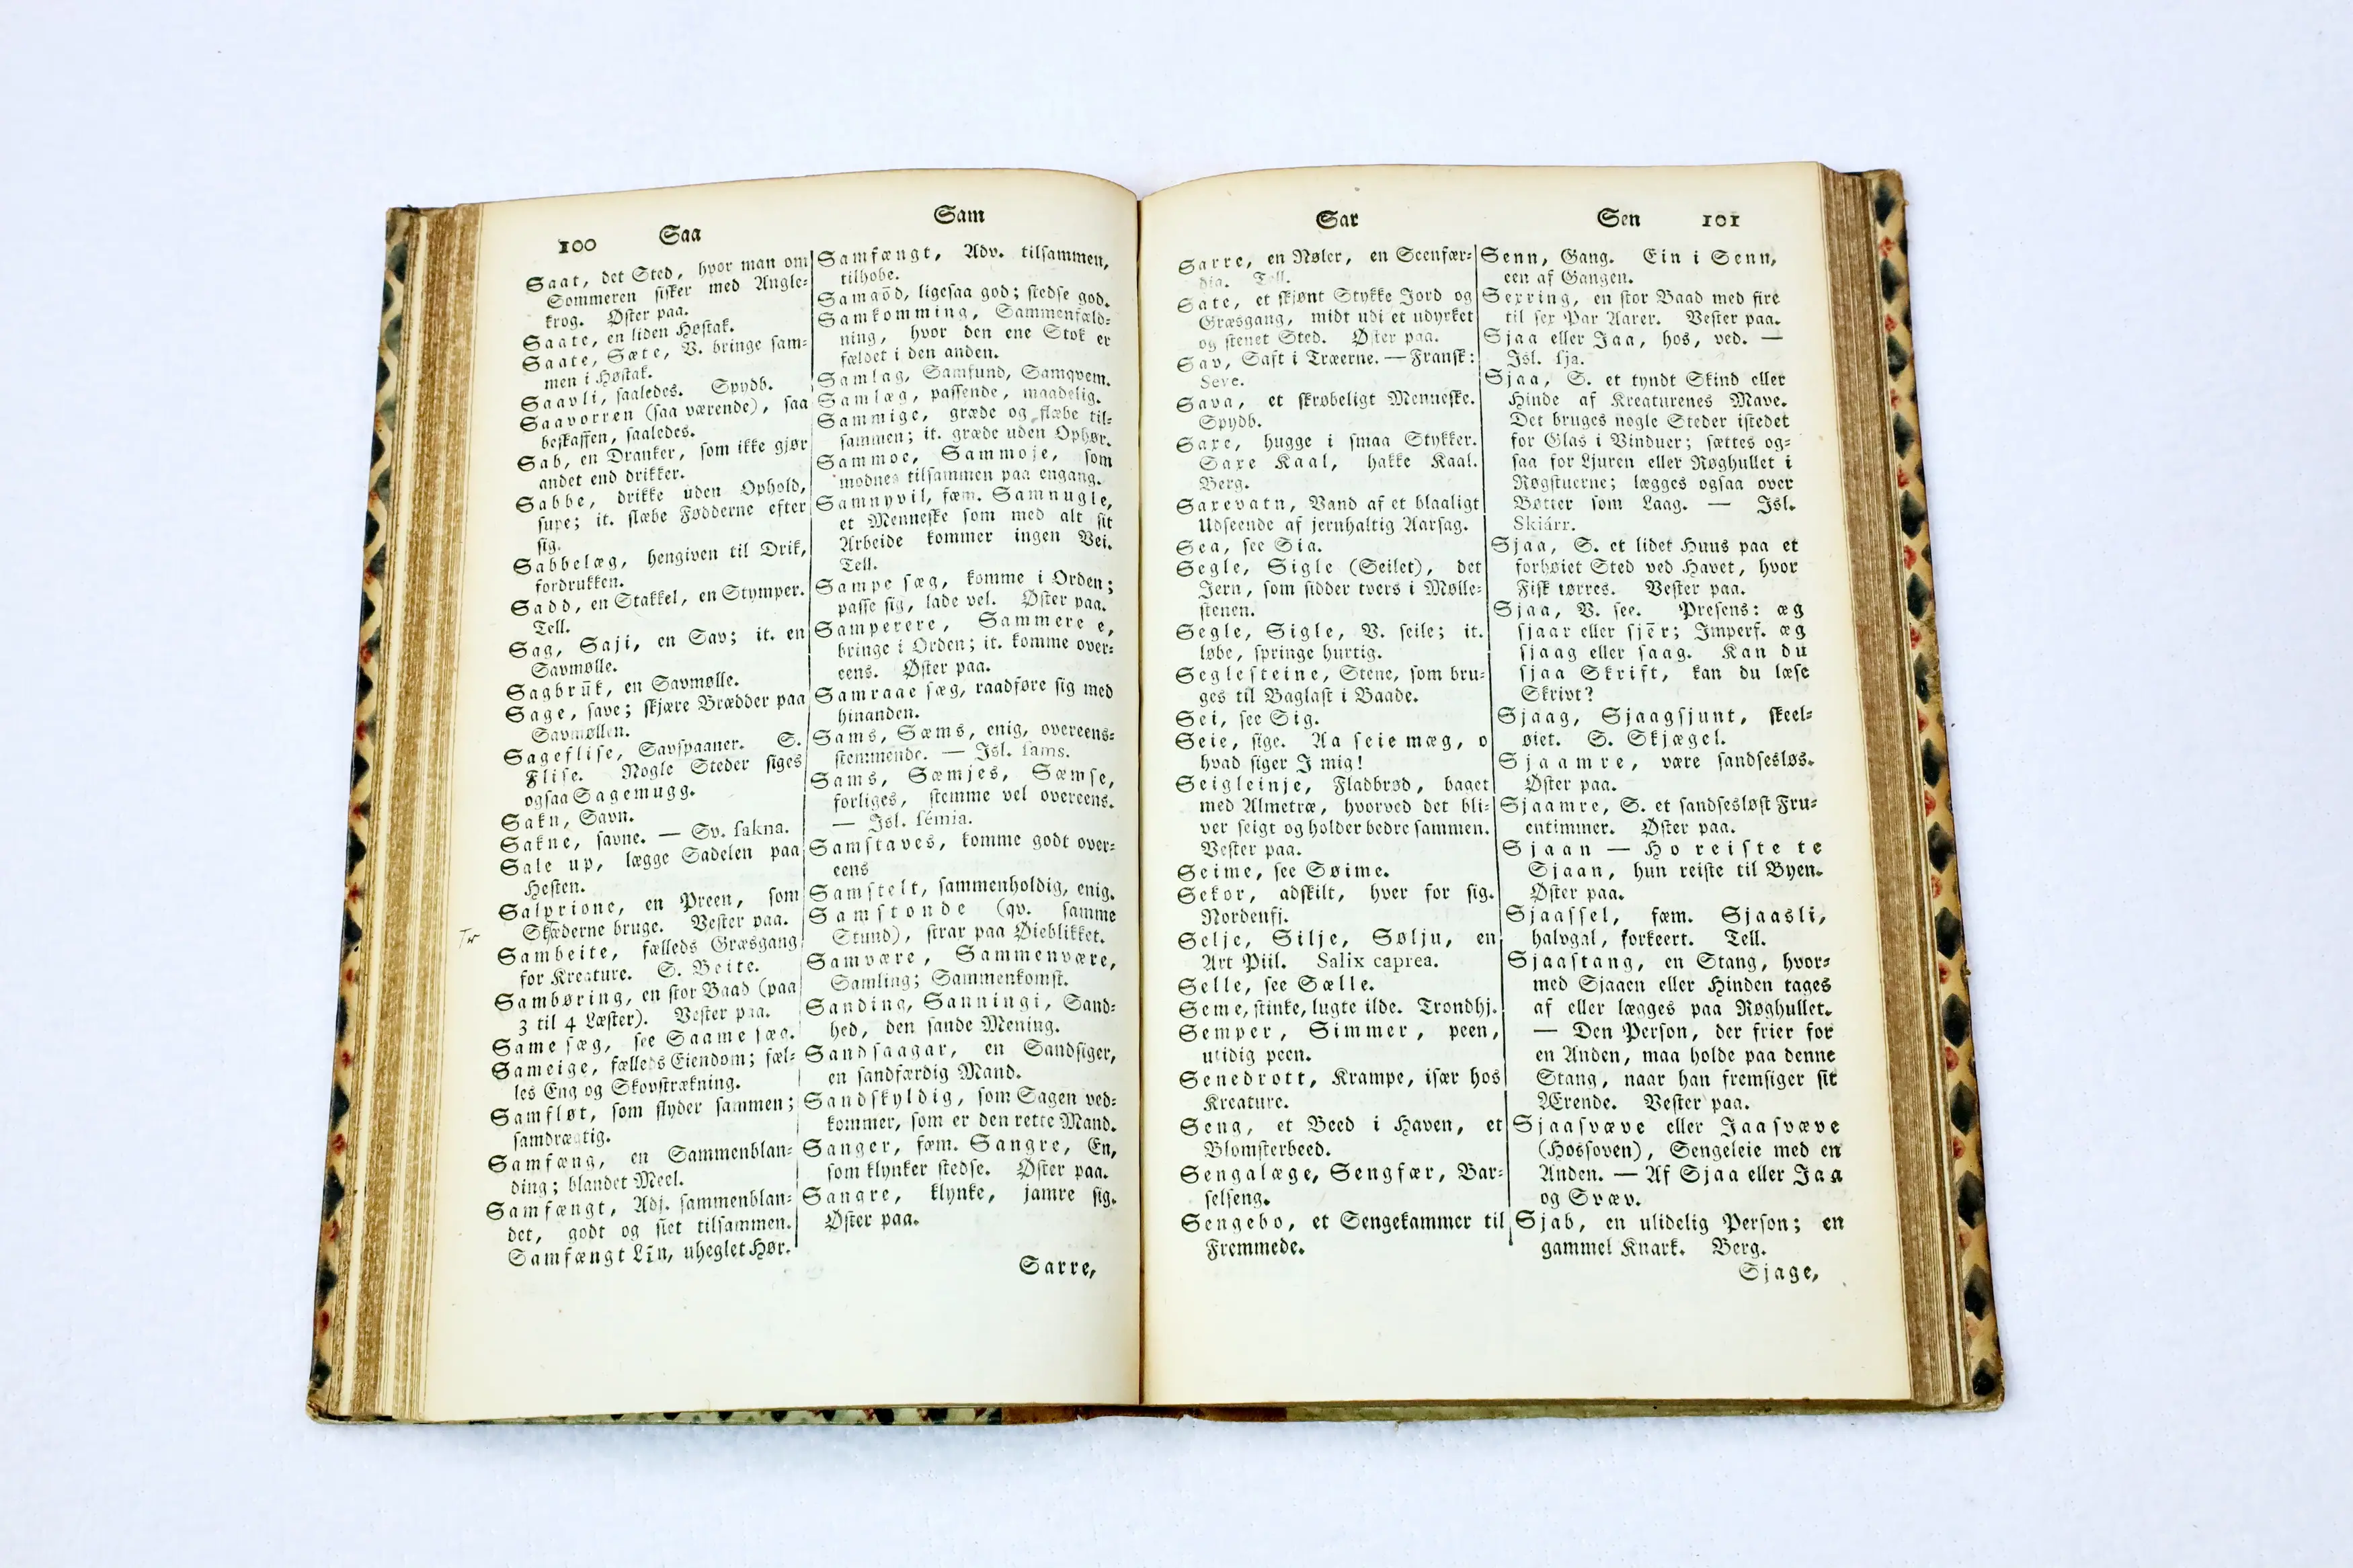 100 Saa Sam
Saat, det Sted, hvor man om
Sommeren fisker med Angle-
krog. Øster paa.
Saate, en liden Høstak.
Saate, Sæte, V. bringe sam-
men i Høstak.
Saavli, saaledes. Spydb.
Saavorren (saa værende), saa
beskaffen, saaledes.
Sab, en Dranker, som ikke gjør
andet end drikker.
Sabbe, drikke uden Ophold,
supe; it. slæbe Fødderne efter
sig.
Sabbelæg, hengiven til Drik,
fordrukken.
Sadd, en Stakkel, en Stymper.
Tell.
Sag, Saji, en Sav; it. en
Savmølle.
Sagbrūk, en Savmølle.
Sage, save; skjære Brædder paa
Savmøllen.
Sageflise, Savspaaner. S.
Flise. Nogle Steder siges
ogsaa Sagemugg.
Sakn, Savn.
Sakne, savne. — Sv. sakna.
Sale up, lægge Sadelen paa
Hesten.
Salprione, en Preen, som
Skæderne bruge. Vester paa.
Tr
Sambeite, fælleds Græsgang
for Kreature. S. Beite.
Sambøring, en stor Baad (paa
3 til 4 Læster). Vester paa.
Same sæg, see Saame sæg.
Sameige, fælleds Eiendom; fæl-
les Eng og Skovstrækning.
Samfløt, som flyder sammen;
samdrægtig.
Samfæng, en Sammenblan-
ding; blandet Meel.
Samfængt, Adj. sammenblan-
det, godt og slet tilsammen.
Samfængt Līn, uheglet Hør.
Samfængt, Adv. tilsammen,
tilhobe.
Samgōd, ligesaa god; stedse god.
Samkomming, Sammenfæld-
ning, hvor den ene Stok er
fældet i den anden.
Samlag, Samfund, Samqvem.
Samlæg, passende, maadelig.
Sammige, græde og flæbe til-
sammen; it. græde uden Ophør.
Sammoe, Sammoje, som
modnes tilsammen paa engang.
Samnyvil, fæm. Samnugle,
et Menneske som med alt sit
Arbeide kommer ingen Vei.
Tell.
Sampe sæg, komme i Orden;
passe sig, lade vel. Øster paa.
Samperere, Sammere e,
bringe i Orden; it. komme over-
eens. Øster paa.
Samraae sæg, raadføre sig med
hinanden.
Sams, Sæms, enig, overeens-
stemmende. — Isl. sams.
Sams, Sæmjes, Sæmse,
forliges, stemme vel overeens.
— Isl. sémia.
Samstaves, komme godt over-
eens
Samstelt, sammenholdig, enig.
Samstonde (qv. samme
Stund), strax paa Øieblikket.
Samvære, Sammenvære,
Samling; Sammenkomst.
Sanding, Sanningi, Sand-
hed, den sande Mening.
Sandsaagar, en Sandsiger,
en sandfærdig Mand.
Sandskyldig, som Sagen ved-
kommer, som er den rette Mand.
Sanger, fæm. Sangre, En,
som klynker stedse. Øster paa.
Sangre, klynke, jamre sig.
Øster paa.
Sarre,
Sar Sen 101
Sarre, en Nøler, en Seenfær-
dig. Tell.
Sate, et skjønt Stykke Jord og
Græsgang, midt udi et udyrket
og stenet Sted. Øster paa.
Sav, Saft i Træerne. — Fransk:
Seve.
Sava, et skrøbeligt Menneske.
Spydb.
Saxe, hugge i smaa Stykker.
Saxe Kaal, hakke Kaal.
Berg.
Saxevatn, Vand af et blaaligt
Udseende af jernhaltig Aarsag.
Sea, see Sia.
Segle, Sigle (Seilet), det
Jern, som sidder tvers i Mølle-
stenen.
Segle, Sigle, V. seile; it.
løbe, springe hurtig.
Seglesteine, Stene, som bru-
ges til Baglast i Baade.
Sei, see Sig.
Seie, sige. Aa seie mæg, o
hvad siger I mig!
Seigleinje, Fladbrød, baget
med Almetræ, hvorved det bli-
ver seigt og holder bedre sammen.
Vester paa.
Seime, see Søime.
Sekor, adskilt, hver for sig.
Nordenfj.
Selje, Silje, Sølju, en
Art Piil. Salix caprea.
Selle, see Sælle.
Seme, stinke, lugte ilde. Trondhj.
Semper, Simmer, peen,
utidig peen.
Senedrott, Krampe, især hos
Kreature.
Seng, et Beed i Haven, et
Blomsterbeed.
Sengalæge, Sengfær, Bar-
selseng.
Sengebo, et Sengekammer til
Fremmede.
Senn, Gang. Ein i Senn,
een af Gangen.
Sexring, en stor Baad med fire
til sex Par Aarer. Vester paa.
Sjaa eller Jaa, hos, ved. —
Isl. sja.
Sjaa, S. et tyndt Skind eller
Hinde af Kreaturenes Mave.
Det bruges nogle Steder istedet
for Glas i Vinduer; sættes og-
saa for Ljuren eller Røghullet i
Røgstuerne; lægges ogsaa over
Bøtter som Laag. — Isl.
Skiárr.
Sjaa, S. et lidet Huus paa et
forhøiet Sted ved Havet, hvor
Fisk tørres. Vester paa.
Sjaa, V. see. Præsens: æg
sjaar eller sjēr; Imperf. æg
sjaag eller saag. Kan du
sjaa Skrift, kan du læse
Skrivt?
Sjaag, Sjaagsjunt, skeel-
øiet. S. Skjægel.
Sjaamre, være sandsesløs.
Øster paa.
Sjaamre, S. et sandsesløst Fru-
entimmer. Øster paa.
Sjaan — Ho reiste te
Sjaan, hun reiste til Byen.
Øster paa.
Sjaassel, fæm. Sjaasli,
halvgal, forkeert. Tell.
Sjaastang, en Stang, hvor-
med Sjaaen eller Hinden tages
af eller lægges paa Røghullet.
— Den Person, der frier for
en Anden, maa holde paa denne
Stang, naar han fremsiger sit
Ærende. Vester paa.
Sjaasvæve eller Jaasvæve
(Hossoven), Sengeleie med en
Anden. — Af Sjaa eller Jaa
og Svæv.
Sjab, en ulidelig Person; en
gammel Knark. Berg.
Sjage,